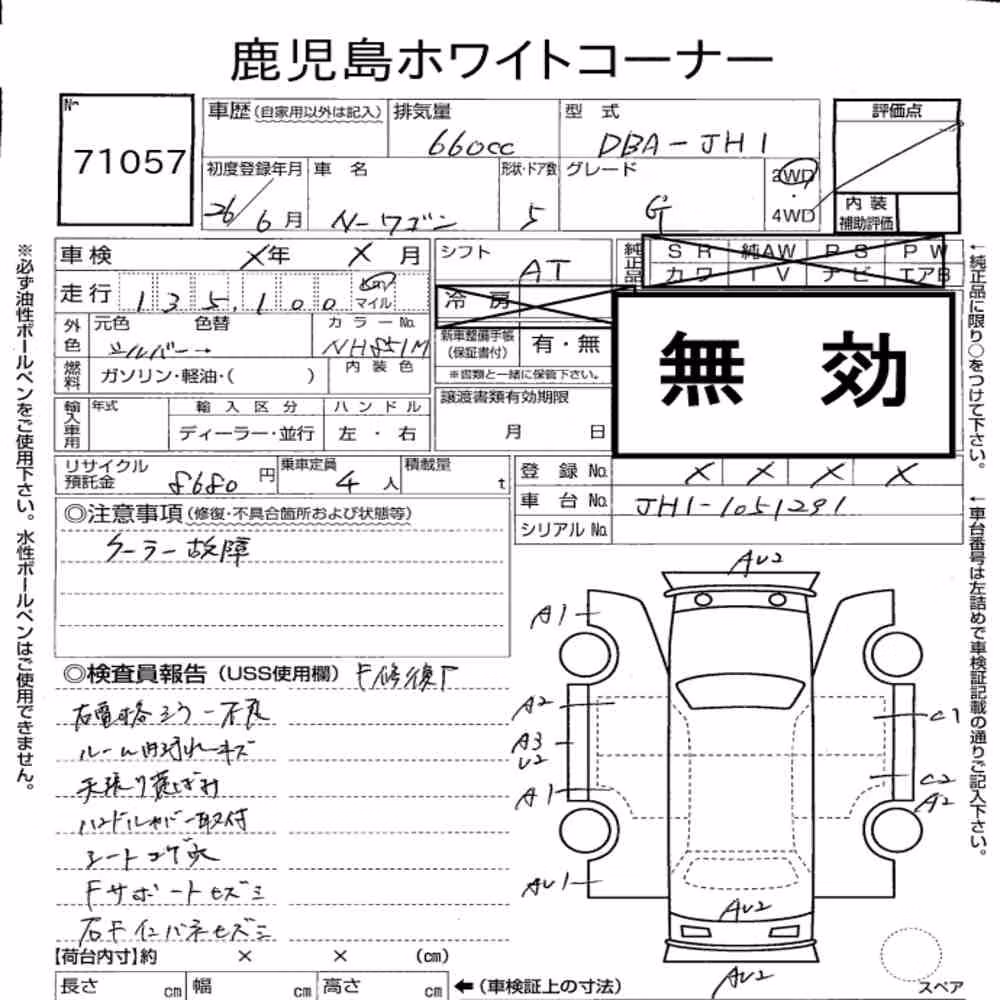 鹿児島ホワイトコーナー
No 71057
車歴(自家用以外は記入) 排気量 660cc 型式 DBA-JH1 評価点
初度登録年月 26/6月 車名 N-ワゴン 形状・ドア数 5 グレード G 2WD・4WD
内装補助評価
車検 ×年 ×月 シフト AT 純正品 SR 純AW PS PW
カワ TV ナビ エアB
走行 135,100 km マイル 冷房
外色 元色 シルバー 色替 → カラーNo. NH851M
新車整備手帳(保証書付) 有・無
※書類と一緒に保管下さい。
無効
燃料 ガソリン・軽油・( ) 内装色
輸入車用 年式 輸入区分 ハンドル
ディーラー・並行 左・右
譲渡書類有効期限
月 日
リサイクル預託金 8680円 乗車定員 4人 積載量 t
登録No. × × × ×
車台No. JH1-1051291
シリアルNo.
◎注意事項(修復・不具合箇所および状態等)
クーラー故障
◎検査員報告(USS使用欄) F修復歴
右電格ミラー不良
ルーム内汚れキズ
天張り黄ばみ
ハンドルカバー取付
シートコゲ穴
Fサポートセズミ
右Fインパネセズミ
【荷台内寸】約 × × (cm)
長さ cm 幅 cm 高さ cm ←(車検証上の寸法)
AU2
A1
A2
C1
A3
U2
C2
A2
A1
AU1
AU2
AU2
スペア
※必ず油性ボールペンをご使用下さい。水性ボールペンはご使用できません。
←純正品に限り○をつけて下さい。
←車台番号は左詰めで車検証記載の通りご記入下さい。